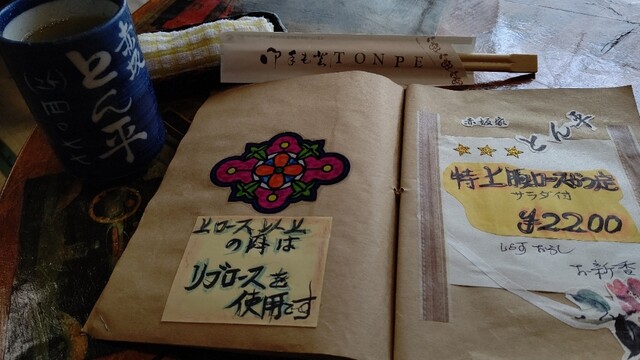 赤坂
とん平
TONPE
上ロース以上
の豚は
リブロースを
使用です
赤坂家
とん平
特上豚ロースかつ定
サラダ付
¥2200
しらすおろし
お新香